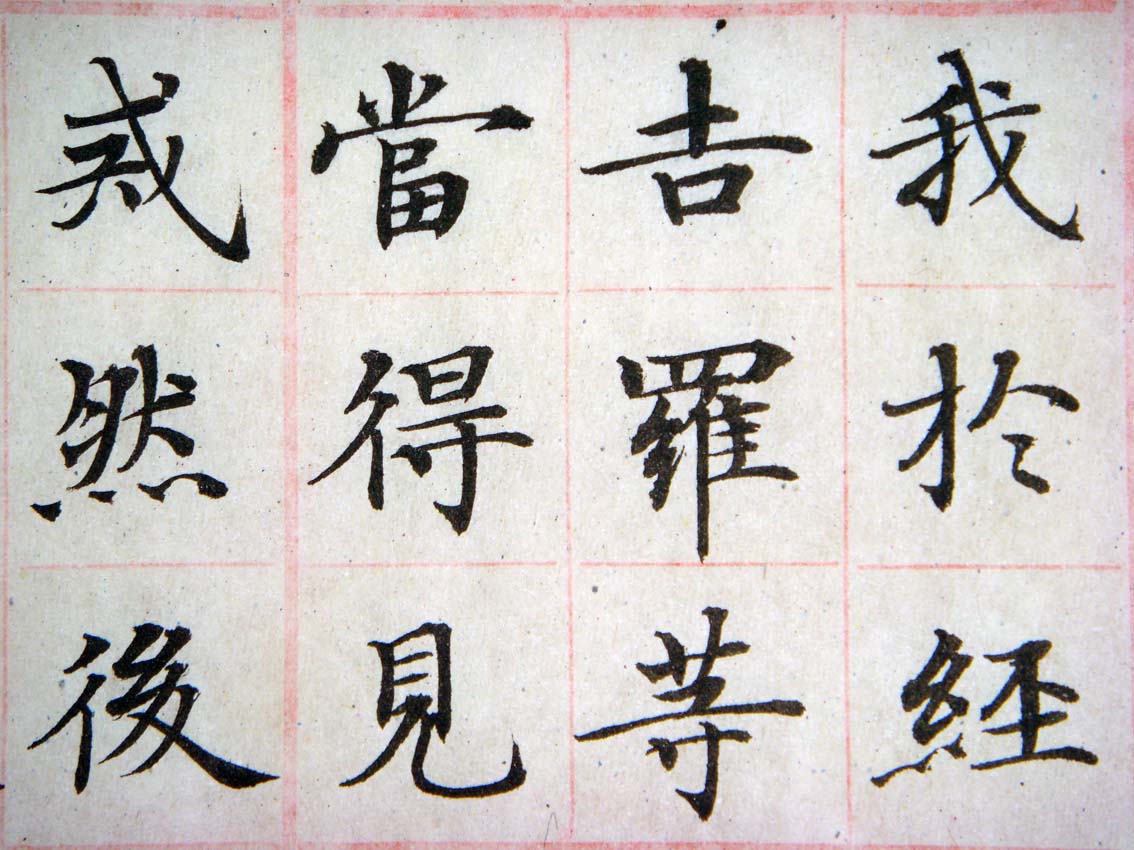 我於經
吉羅等
當得見
戒然後